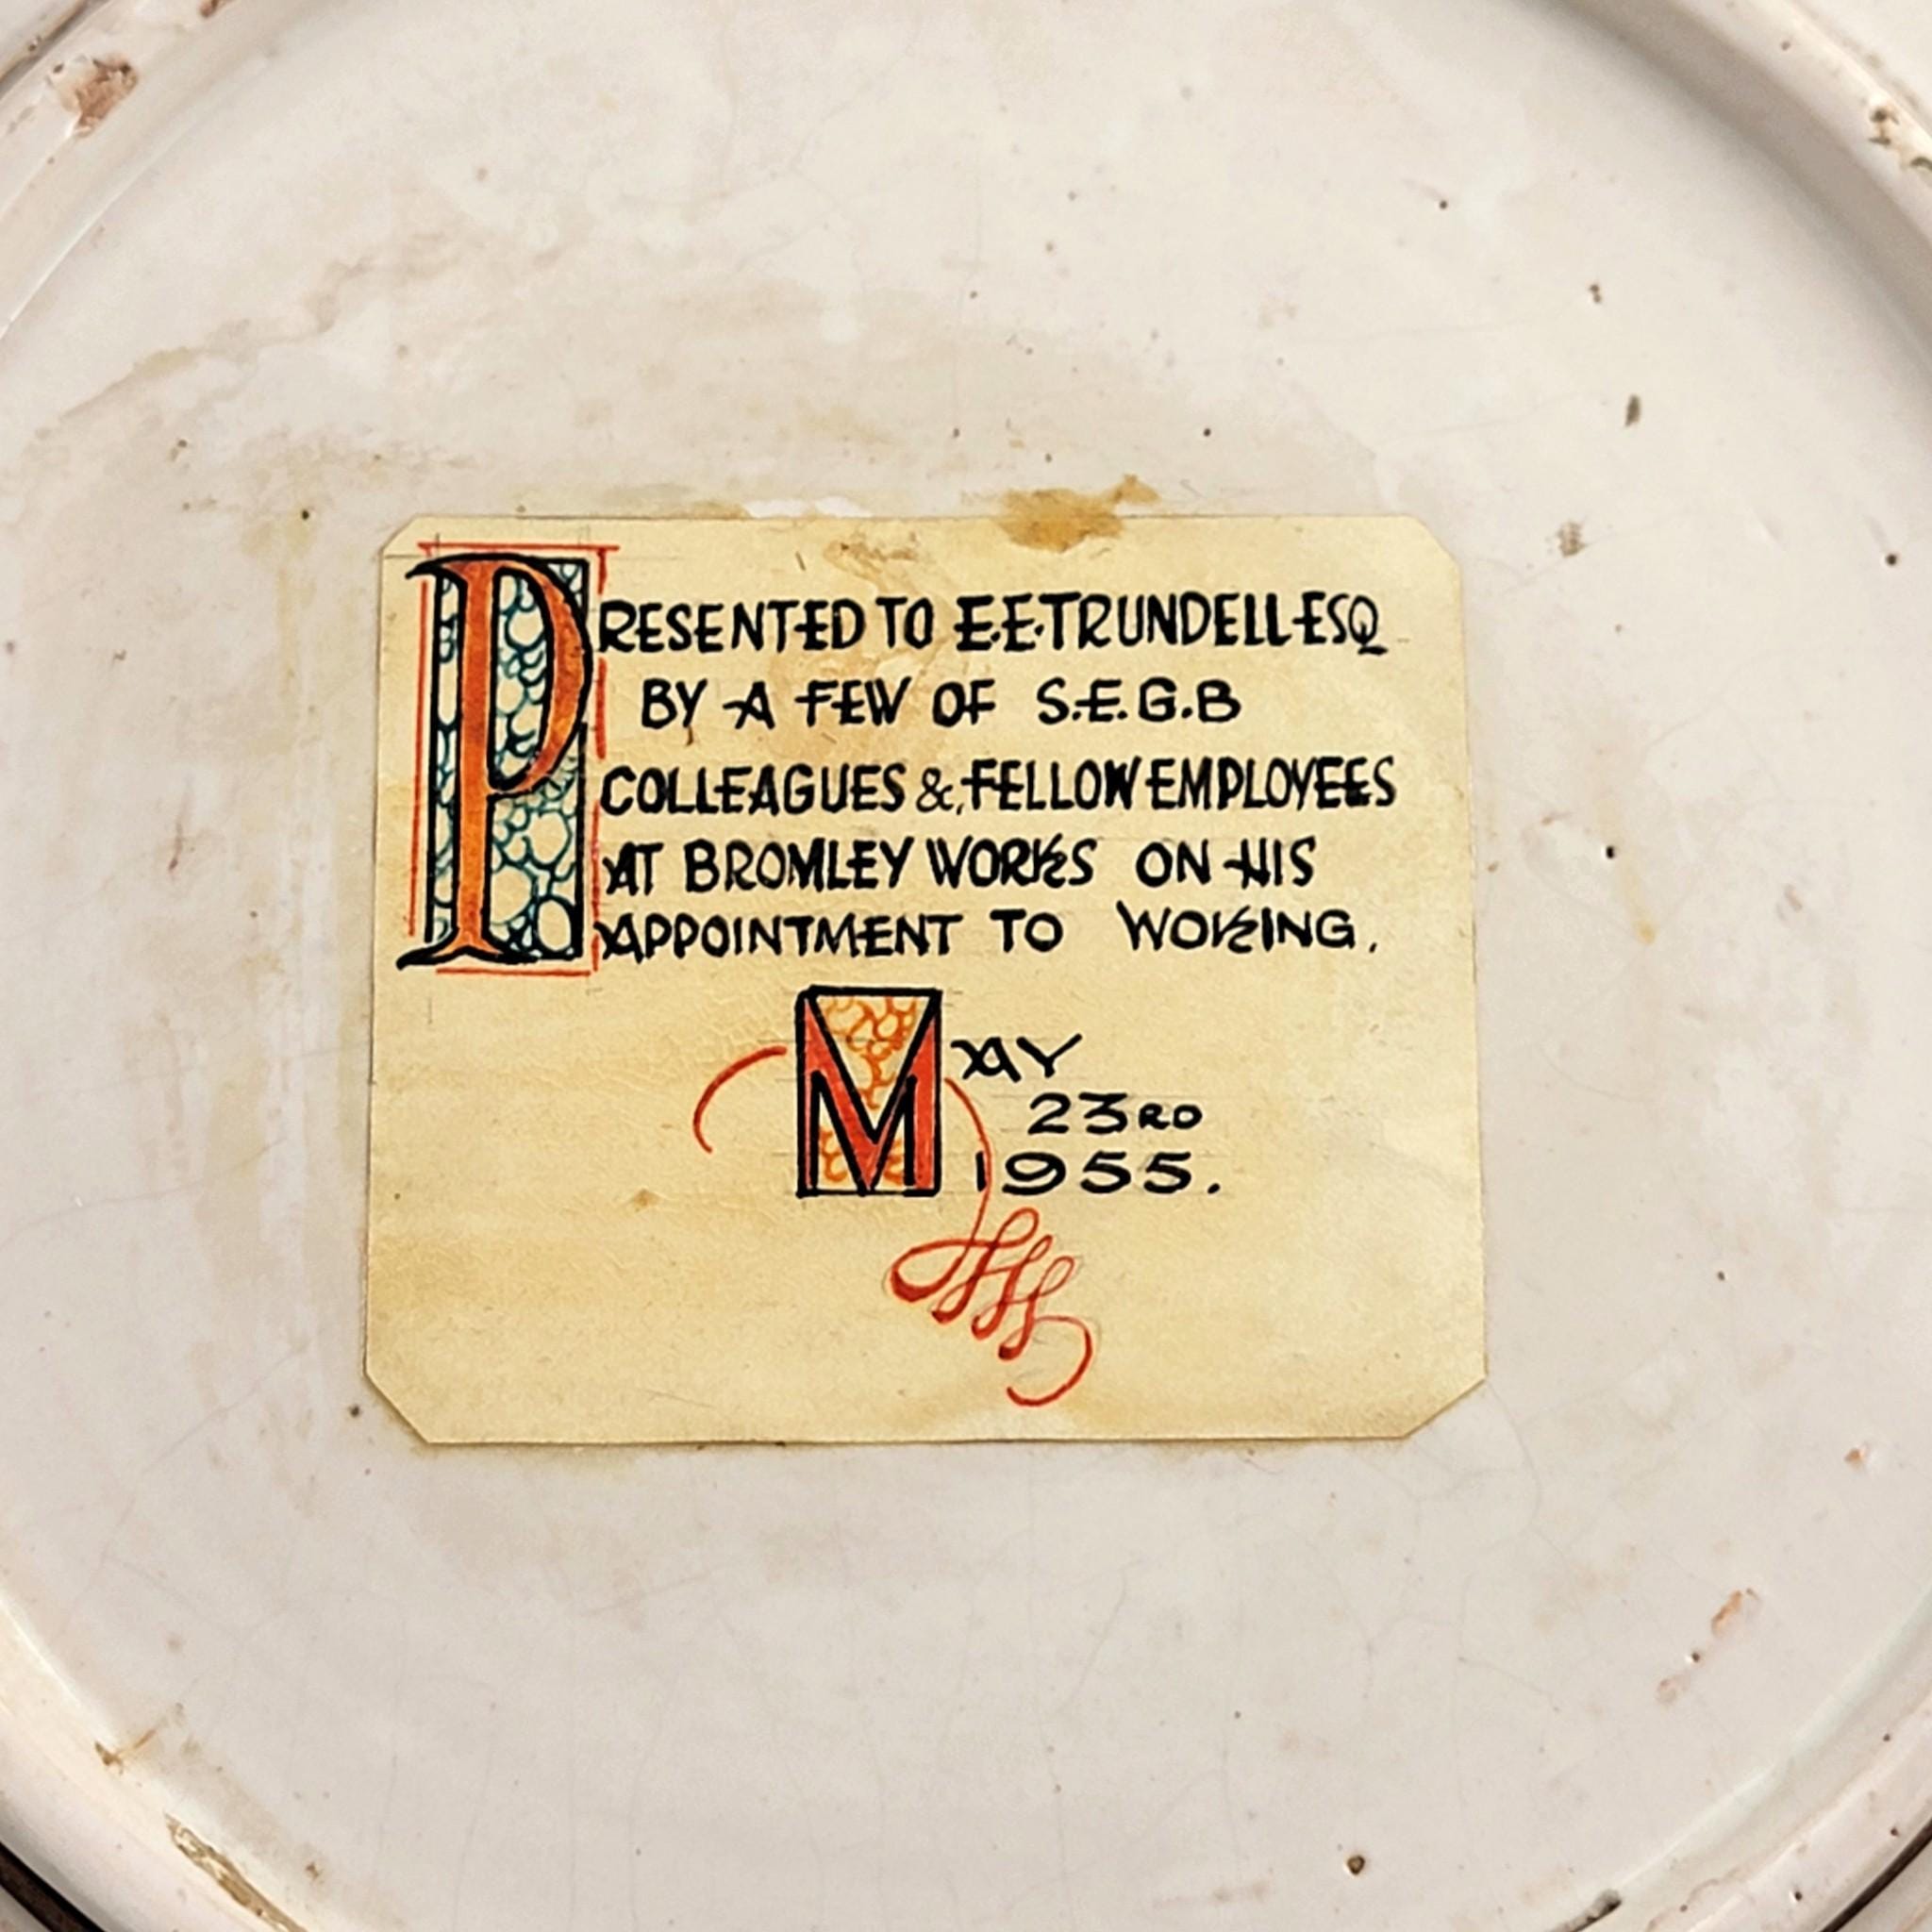 PRESENTED TO E.E.TRUNDELL ESQ
BY A FEW OF S.E.G.B
COLLEAGUES & FELLOW EMPLOYEES
AT BROMLEY WORKS ON HIS
APPOINTMENT TO WOKING.
MAY
23RD
1955.